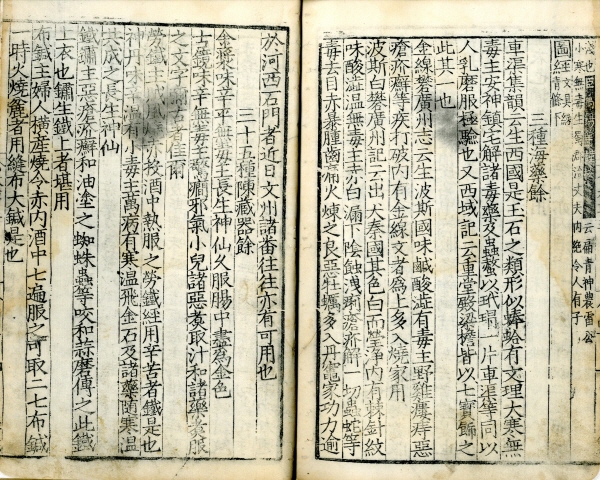 小寒無毒生蜀郡治丈夫內絶令人有子
三種海藥餘
車渠集韻云生西國是玉石之類形似蚌蛤有文理大寒無
毒主安神鎮宅解諸毒藥及蟲螫以玳瑁一片車渠等同以
人乳磨服極驗也又西域記云重堂殿梁檐皆以七寶飾之
此其一也
金線礬廣州志云生波斯國味鹹酸澁有毒主野雞瘻痔惡
瘡疥癬等疾打破内有金線文者爲上多入燒家用
波斯白礬廣州記云出大秦國其色白而瑩淨内有棘針紋
味酸澁溫無毒主赤白漏下陰蝕洩痢瘡疥解一切蟲蛇等
毒去目赤暴腫齒痛火煉之良惡牡蠣多入丹竈家功力逾
於河西石門者近日文州諸番往往亦有可用也
三十五種陳藏器餘
金漿味辛平無毒主長生神仙久服腸中盡爲金色
古鏡味辛無毒主驚癎邪氣小兒諸惡煑取汁和諸藥煑服
之文字彌古者佳爾
勞鐵主賊風燒赤投酒中熱服之勞鐵經用辛苦者鐵是也
神丹味辛溫有小毒主萬病有寒溫飛金石及諸藥隨寒溫
共成之長生神仙
鐵鏽主惡瘡疥癬和油塗之蜘蛛蟲等咬和蒜磨傅之此鐵
上衣也鏽生鐵上者堪用
布鍼主婦人橫産燒令赤内酒中七遍服之可取二七布鍼
一時火燒麄者用縫布大鍼是也